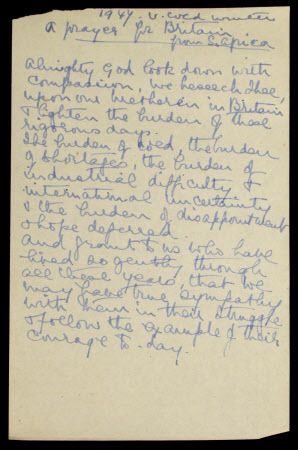 1947. v. cold winter
A prayer for Britain
from S. Africa
Almighty God look down with
compassion, we beseech Thee,
upon our brethren in Britain
& lighten the burden of these
rigorous days.
The burden of cold, the burden
of shortages, the burden of
industrial difficulty &
international uncertainty
& the burden of disappointment
& hope deferred.
And grant to us who have
lived so gently through
all these years, that we
may have true sympathy
with them in their struggle
& follow the example of their
courage to-day.